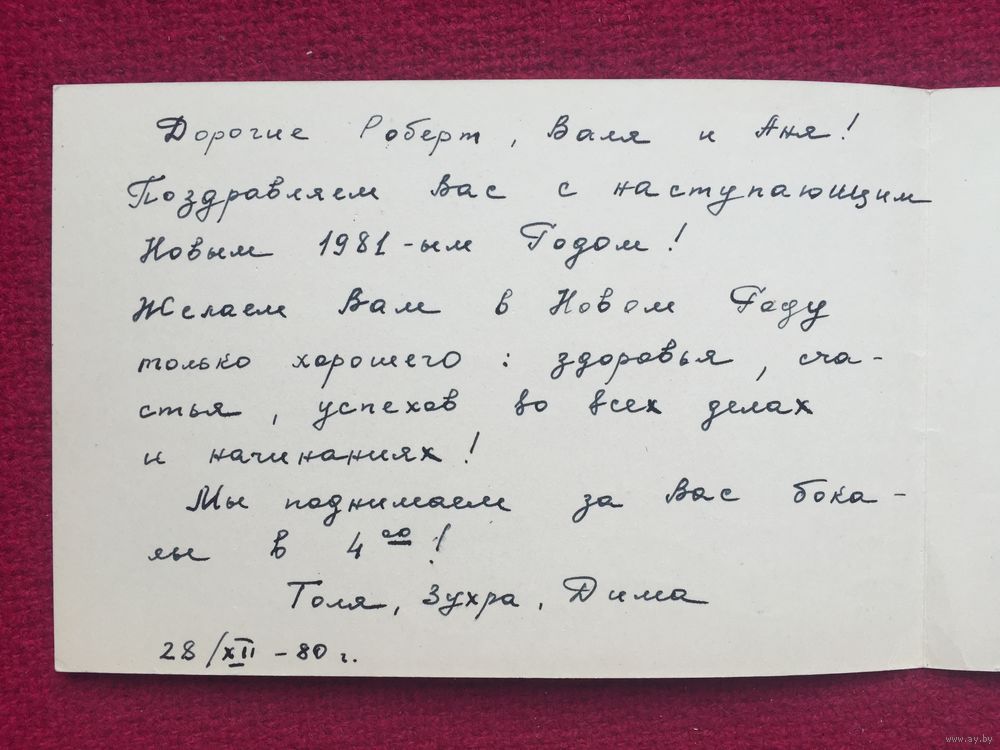 Дорогие Роберт, Валя и Аня!
Поздравляем Вас с наступающим
Новым 1981-ым Годом!
Желаем Вам в Новом Году
только хорошего: здоровья, сча-
стья, успехов во всех делах
и начинаниях!
Мы поднимаем за Вас бока-
лы в 4 00!
Толя, Зухра, Дима
28/XII-80 г.
www.ay.by